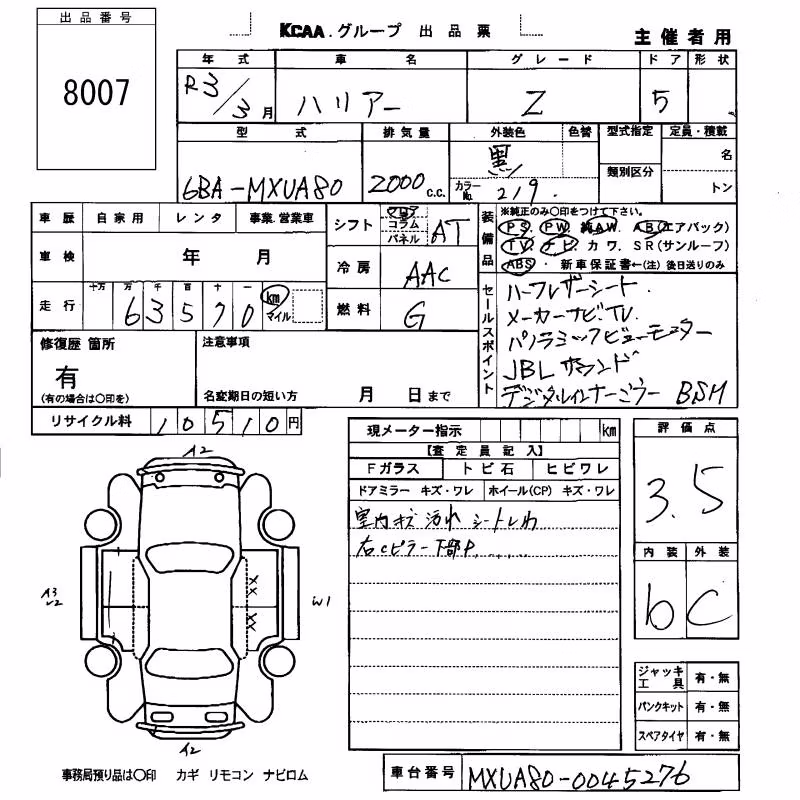 出品番号
8007
KCAA.グループ 出品票
主催者用
年式 車名 グレード ドア 形状
R3/3月 ハリアー Z 5
型式 排気量 外装色 色替 型式指定 定員・積載
6BA-MXUA80 2000c.c. 黒 名
カラーNo. 219. 類別区分 トン
車歴 自家用 レンタ 事業.営業車
シフト フロア コラム パネル AT
装備品 ※純正のみ〇印をつけて下さい。
PS. PW. 純AW. AB(エアバック)
TV. ナビ. カワ. SR(サンルーフ)
ABS. 新車保証書←(注)後日送りのみ
車検 年 月
冷房 AAC
走行 十万 万 千 百 十 一 km マイル
63570
燃料 G
セールスポイント
ハーフレザーシート.
メーカーナビTV.
パノラミックビューモニター
JBLサウンド
デジタルインナーミラー BSM
修復歴 箇所
有
(有の場合は〇印を)
注意事項
名変期日の短い方 月 日まで
リサイクル料 10510円
現メーター指示 km
【査定員記入】
Fガラス トビ石 ヒビワレ
ドアミラー キズ・ワレ ホイール(CP) キズ・ワレ
室内キズ 汚れ シートしわ
右Cピラー下部P.
評価点
3.5
内装 外装
b C
A2
A3
W1
A2
ジャッキ工具 有・無
パンクキット 有・無
スペアタイヤ 有・無
事務局預り品は〇印 カギ リモコン ナビロム
車台番号 MXUA80-0045276